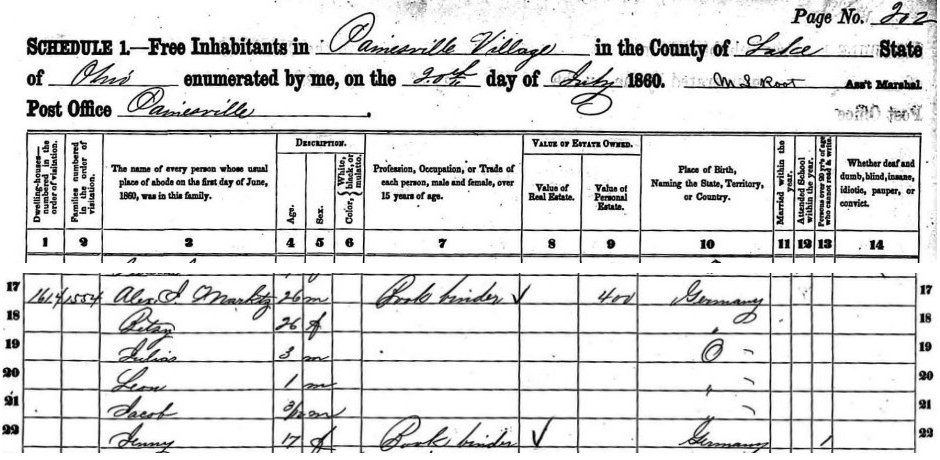 Page No. 202
SCHEDULE 1.—Free Inhabitants in Painesville Village in the County of Lake State
of Ohio enumerated by me, on the 20th day of July 1860. Ass't Marshal
Post Office Painesville.
Dwelling-houses—numbered in the order of visitation.
Families numbered in the order of visitation.
The name of every person whose usual place of abode on the first day of June, 1860, was in this family.
DESCRIPTION.
Age.
Sex.
Color, White, black, or mulatto.
Profession, Occupation, or Trade of each person, male and female, over 15 years of age.
VALUE OF ESTATE OWNED.
Value of Real Estate.
Value of Personal Estate.
Place of Birth, Naming the State, Territory, or Country.
Married within the year.
Attended School within the year.
Persons over 20 y'rs of age who cannot read & write.
Whether deaf and dumb, blind, insane, idiotic, pauper, or convict.
1 2 3 4 5 6 7 8 9 10 11 12 13 14
17 1614 1554 Alex. I. 26 m Book binder 400 Germany 17
18 Betsy 26 f " 18
19 Julius 3 m O " 19
20 Leon 1 m " " 20
21 Jacob 3/12 m 21
22 Jenny 17 f Book binder Germany 1 22